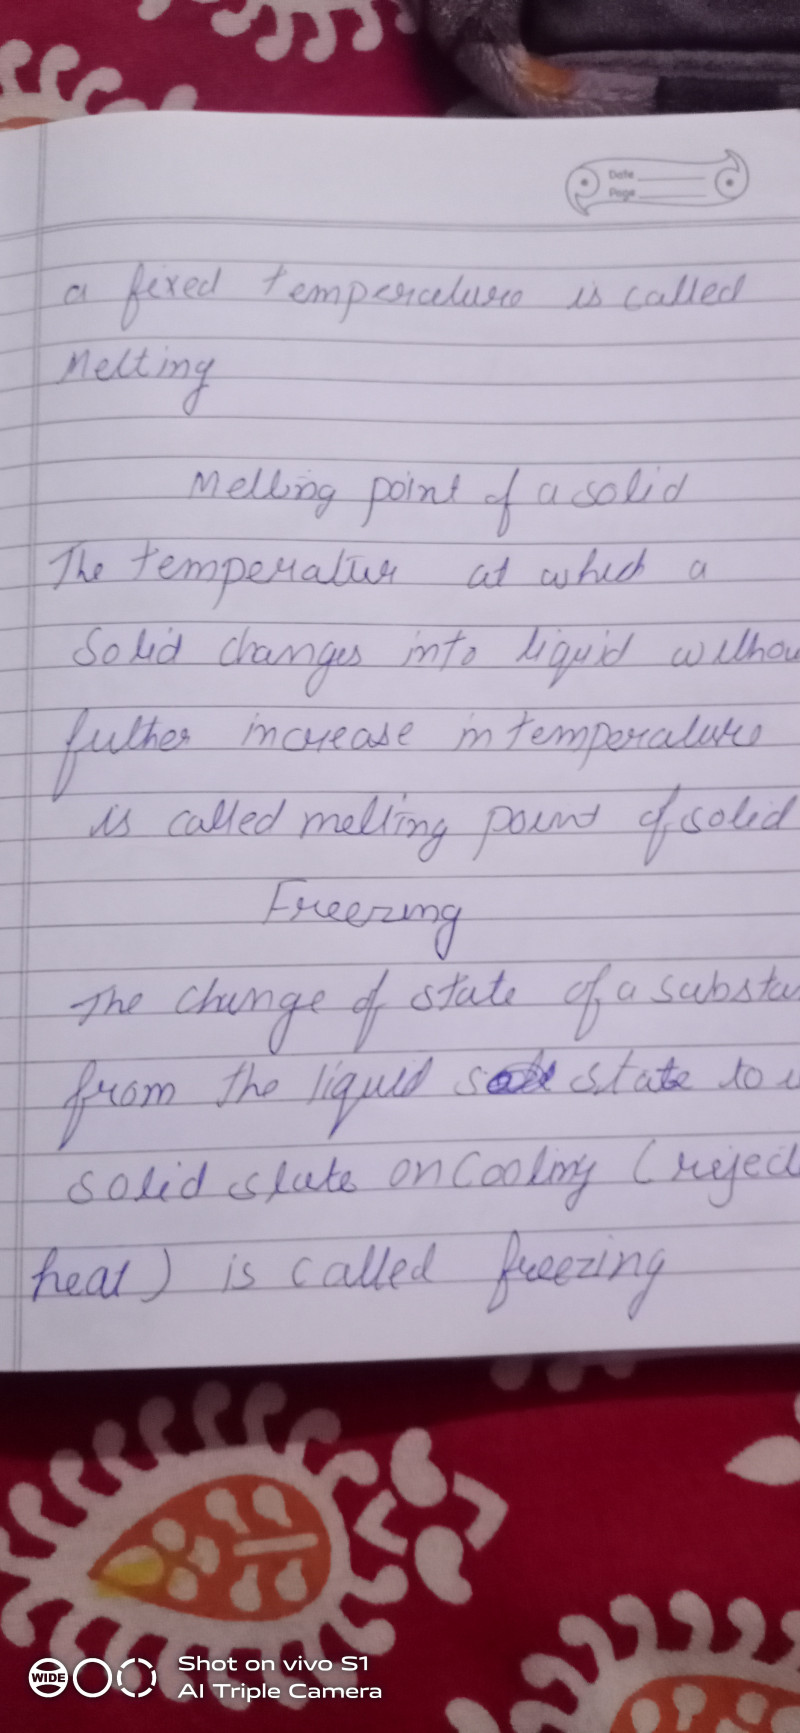 Date
Page
a fixed temperature is called
Melting
Melting point of a solid
The temperatur at which a
Solid changes into liquid withou
futher increase in temperature
is called melting point of solid
Freezing
The change of state of a substan
from the liquid state to
solid state on Cooling (reject
heat) is called freezing
WIDE
Shot on vivo S1
AI Triple Camera